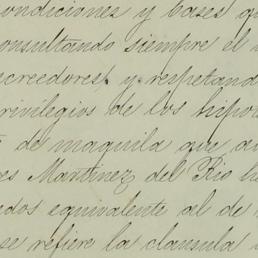 condiciones y bases q
consultando siempre el
acreedores y respetand
privilegios de los hipot
de maquila que
es Martinez del Rio h
edos equivalente al de
se refiere la clausula